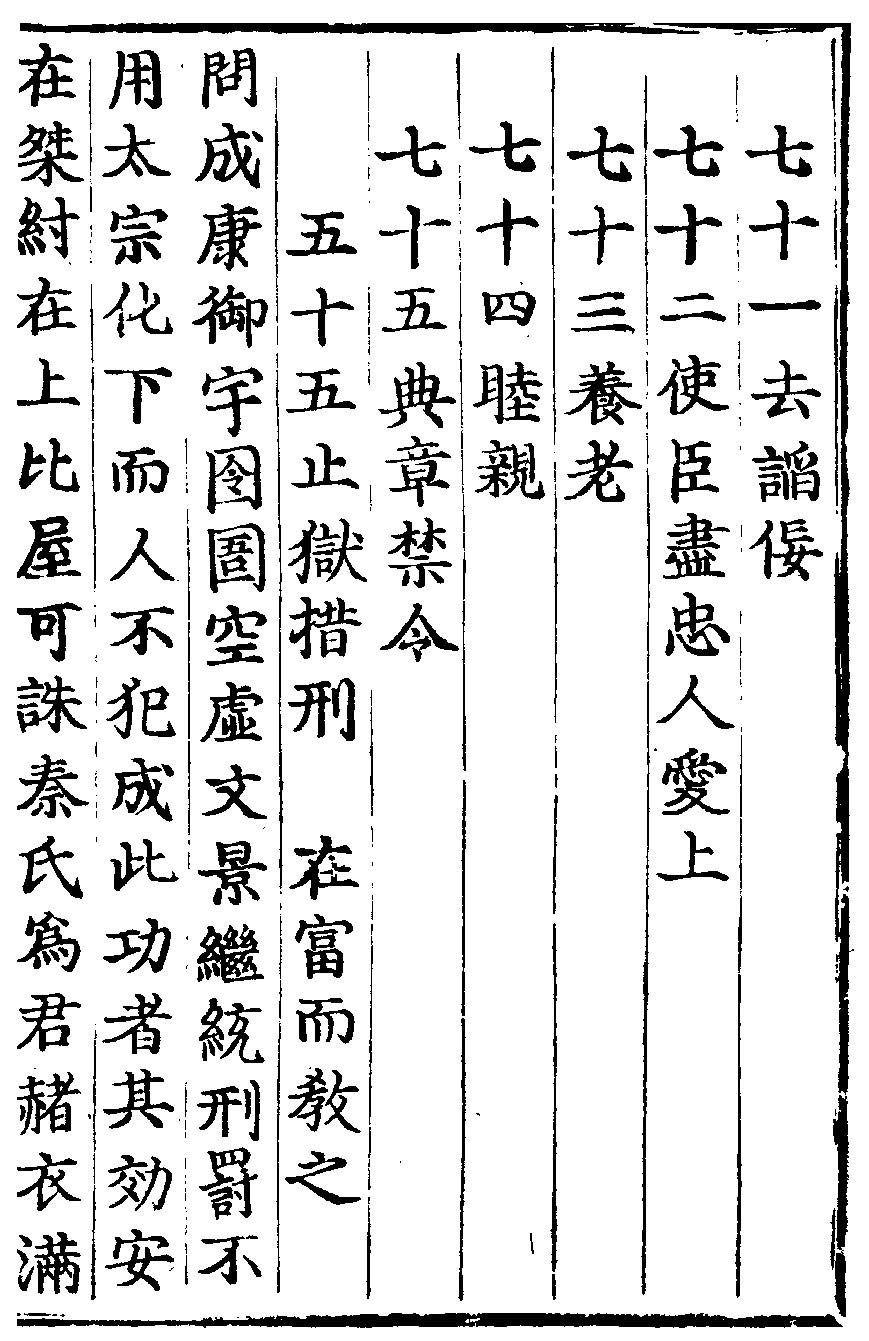 七十一去謟佞
七十二使臣盡忠人愛上
七十三養老
七十四睦親
七十五典章禁令
五十五止獄措刑　在富而教之
問成康御宇囹圄空虛文景繼統刑罰不
用太宗化下而人不犯成此功者其効安
在桀紂在上比屋可誅秦氏為君赭衣滿